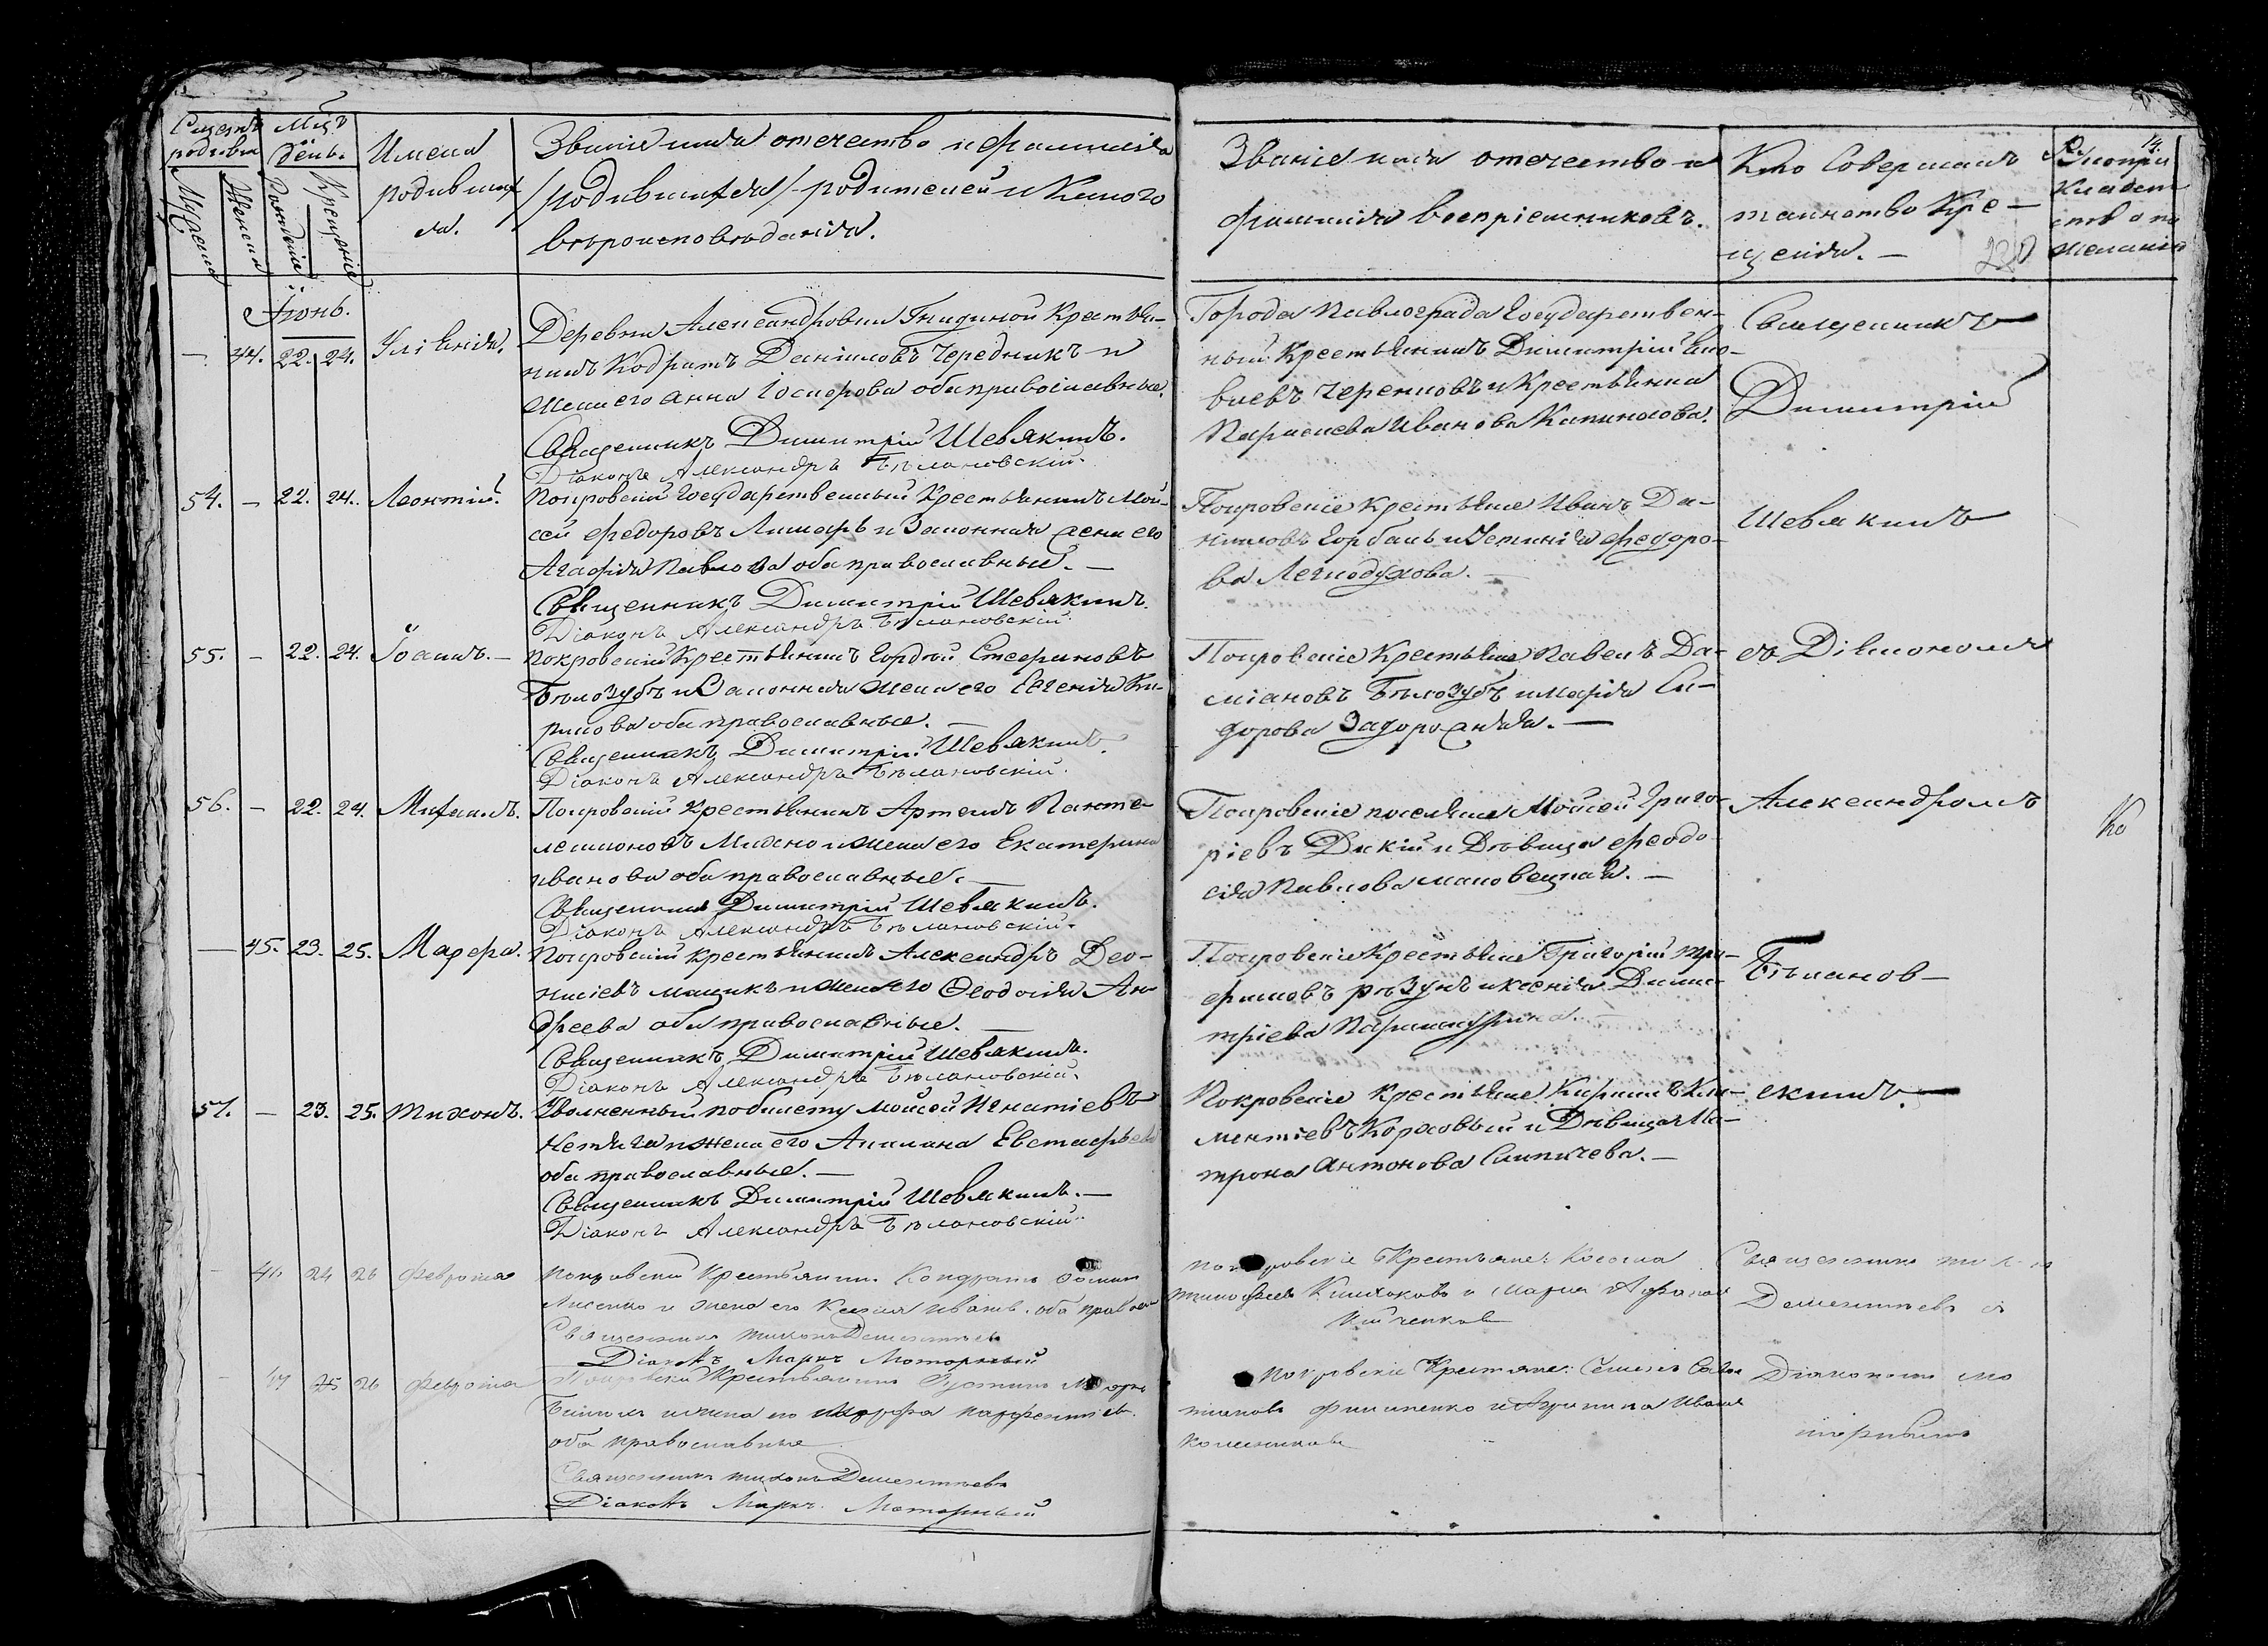 Счетъ родивш
Мужеска
Женска
Мцъ день.
Рожденія
Крещенія
Имена родивших ся.
Званіе имя отечество и фамилія
/родившихся/ родителей и Какого
вѣроисповѣданія.
Званіе имя отечество и
фамилія воспріемниковъ.
Кто Совершалъ
таинство Кре—
щенія. —
14.
Рукопри
кладст
ство по
желанію
220
Іюнь.
— 44. 22. 24. Уліянія.
Деревни Александровки Гнидиной Крестья-
нинъ Кодратъ Даніиловъ Чередникъ и
жена его Анна Іосифова оба православные.
Священникъ Димитрій Шевякинъ.
Діаконъ Александръ Бѣлановскій.
Города Павлограда Государствен-
ный Крестьянинъ Димитрій
Черенковъ и Крестьянка
Параскева Иванова
Священникъ
Димитрій
54. — 22. 24. Леонтій.
Покровскій Государственный Крестьянинъ Мой-
сей Федоровъ Лимарь и Законная жена его
Агафія Павлова оба православные. —
Священникъ Димитрій Шевякинъ.
Діаконъ Александръ Бѣлановскій.
Покровскіе Крестьяне Иванъ Да-
ниловъ Горбань и Устинія Федоро-
ва Легкодухова. —
Шевякинъ
55. — 22. 24. Іоаннъ. —
Покровскій Крестьянинъ Гордѣй Стефановъ
Бѣлозубъ и Законная жена его Евгенія Ки-
рилова оба православные. —
Священникъ Димитрій Шевякинъ.
Діаконъ Александръ Бѣлановскій.
Покровскіе Крестьяне Павелъ Да-
міановъ Бѣлозубъ и Марія Си-
дорова Задорожняя. —
съ Діакономъ
56. — 22. 24. Михаилъ.
Покровскій Крестьянинъ Артемъ Панте-
леимоновъ и жена его Екатерина
Иванова оба православные. —
Священникъ Димитрій Шевякинъ.
Діаконъ Александръ Бѣлановскій.
Покровскіе поселяне Мойсей Григо-
ріевъ Дикій и Дѣвица Феодо
сія Павлова Маковецкая. —
Александромъ
— 45. 23. 25. Мавра.
Покровскій Крестьянинъ Александръ Део-
нисіевъ и жена его Феодосія Ан-
дреева оба православные. —
Священникъ Димитрій Шевякинъ.
Діаконъ Александръ Бѣлановскій.
Покровскіе Крестьяне Григорій Тро-
фимовъ и Ксенія Дими-
тріева
Бѣланов—
57. — 23. 25. Тихонъ.
Уволненный по билету Мойсей Игнатіевъ
Нетяга и жена его Акилина Евстафьева
оба православные. —
Священникъ Димитрій Шевякинъ. —
Діаконъ Александръ Бѣлановскій.
Покровскіе Крестьяне Кирилъ Кли-
ментіевъ Коржовый и Дѣвица Ма-
трона Антонова —
скимъ. —
24 26 Феврония
Покровский Крестьянин Кондрать
Лисенко и жена его Ксения Иванов. оба правосл
Священник Тихонъ Дементьев
Діаконъ Маркъ Моторный
Покровские Крестьяне: Косма
Тимофеев и Мария
Священник Тихон
Дементьевъ с
25 26 Феврония
Покровский Крестьянин
и жена его
оба православные
Священник Тихонъ Дементьевъ
Діаконъ Маркъ Моторный
Покровские Крестяне: Семенъ
Филипенко и Агрипина Иванов
Диаконом Мо
торным